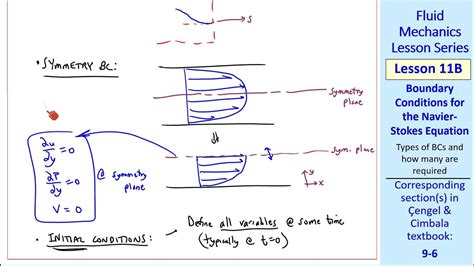 S
• SYMMETRY BC:
symmetry
plane
⇓
sym. plane
∂u/∂y = 0
∂P/∂y = 0
V = 0
@ symmetry
plane
y
x
• INITIAL CONDITIONS:
Define all variables @ some time
(typically @ t=0)
Fluid
Mechanics
Lesson Series
Lesson 11B
Boundary
Conditions for
the Navier-
Stokes Equation
Types of BCs and
how many are
required
Corresponding
section(s) in
Çengel &
Cimbala
textbook:
9-6